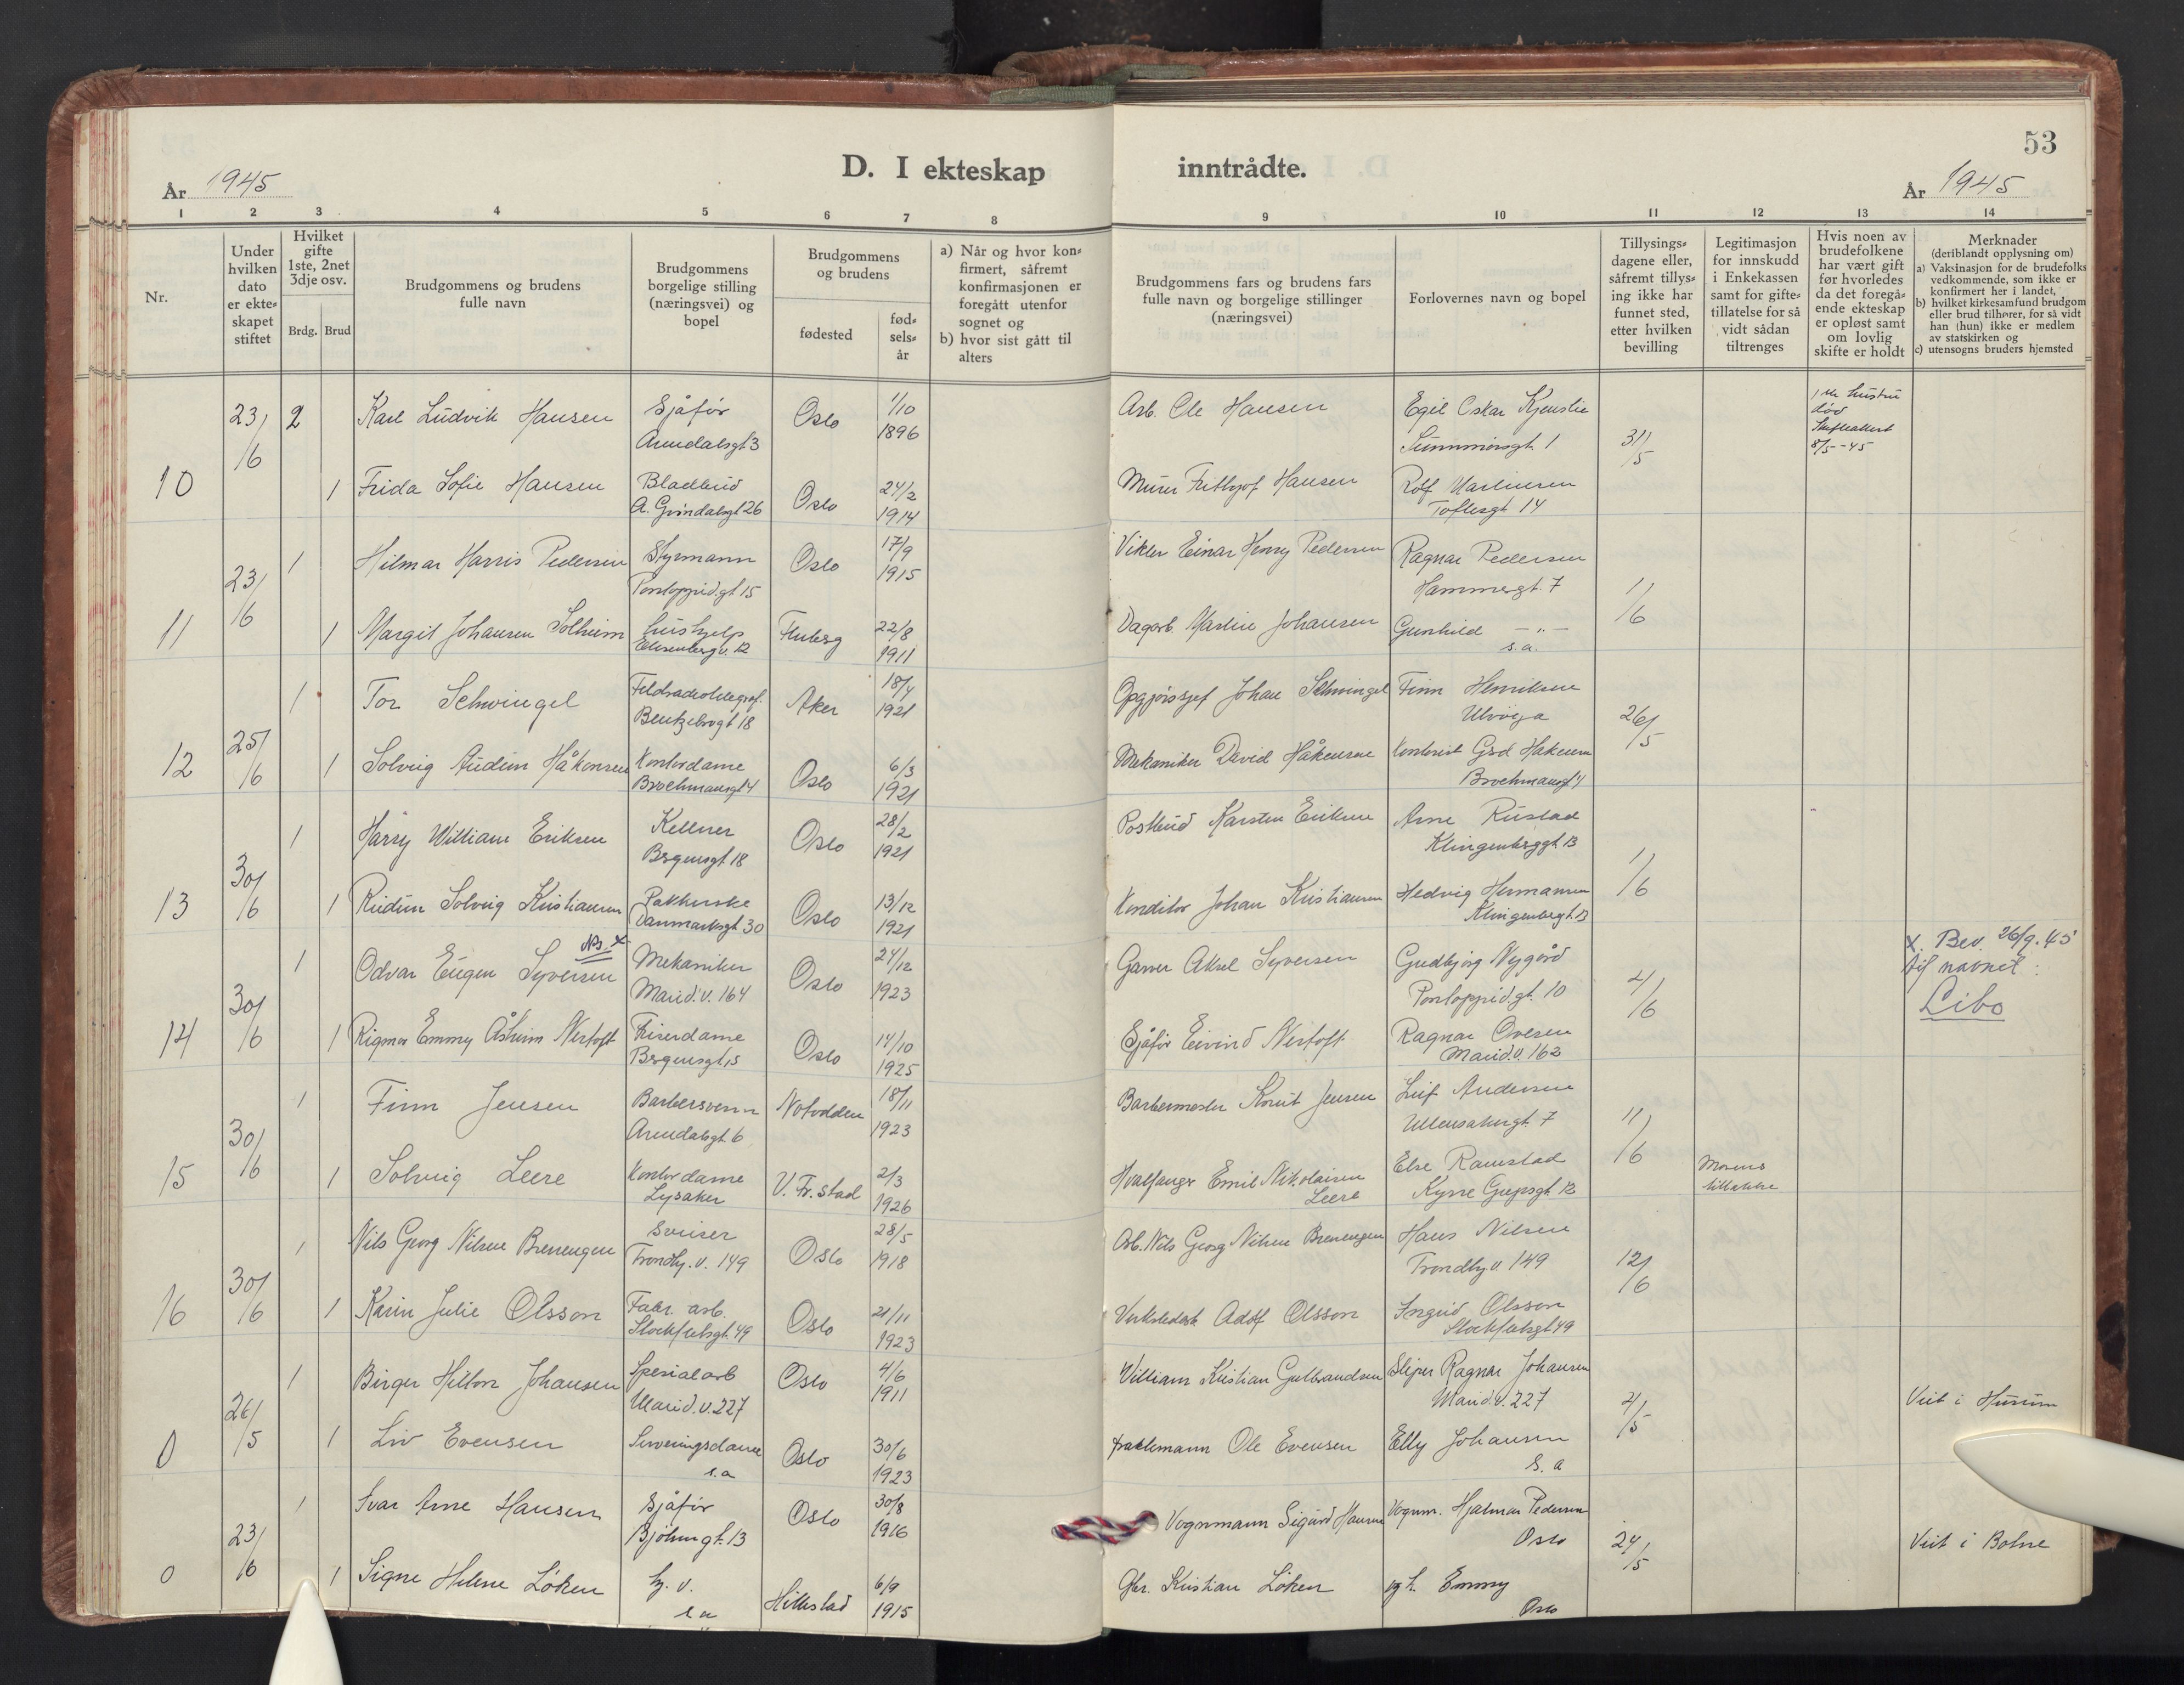 53
D. I ekteskap inntrådte.
År 1945
År 1945
1 2 3 4 5 6 7 8 9 10 11 12 13 14
Nr.
Under
hvilken
dato
er ekte=
skapet
stiftet
Hvilket
gifte
1ste, 2net
3dje osv.
Brdg. Brud
Brudgommens og brudens
fulle navn
Brudgommens
borgelige stilling
(næringsvei) og
bopel
Brudgommens
og brudens
fødested
fød=
sels=
år
a) Når og hvor kon=
firmert, såfremt
konfirmasjonen er
foregått utenfor
sognet og
b) hvor sist gått til
alters
Brudgommens fars og brudens fars
fulle navn og borgelige stillinger
(næringsvei)
Forlovernes navn og bopel
Tillysings=
dagene eller,
såfremt tillys=
ing ikke har
funnet sted,
etter hvilken
bevilling
Legitimasjon
for innskudd
i Enkekassen
samt for gifte=
tillatelse for så
vidt sådan
tiltrenges
Hvis noen av
brudefolkene
har vært gift
før hvorledes
da det foregå=
ende ekteskap
er opløst samt
om lovlig
skifte er holdt
Merknader
(deriblandt opplysning om)
a) Vaksinasjon for de brudefolks
vedkommende, som ikke er
konfirmert her i landet,
b) hvilket kirkesamfund brudgom
eller brud tilhører, for så vidt
han (hun) ikke er medlem
av statskirken og
c) utensogns bruders hjemsted
10 23/6 2 Karl Ludvik Hansen Sjåfør Oslo 1/10 Arb. Ole Hansen Egil Oskar Kjenslie 31/5 hustru
Arendalsgt 3 1896 Sunnmørsgt. 1 død
8/5--45
1 Frida Sofie Hansen Bladbud Oslo 24/2 Murer Frithjof Hansen Rolf Martinsen
A. Grøndalsgt 26 1914 Toftesgt 14
11 23/6 1 Hilmar Harris Pedersen Styrmann Oslo 17/9 Einar Henry Pedersen Ragnar Pedersen 1/6
Pontoppid.gt 15 1915 Hammersgt. 7
1 Margit Johansen Solheim hushjelp Fluberg 22/8 Dagarb. Martin Johansen Gunhild —"—
Eilisenberg v. 12 1911 s.a.
12 25/6 1 Tor Schwingel Feltradiotelegraf. Aker 18/4 Opgjørssjef Johan Schwingel Finn Henriksen 26/5
Bentzebrogt 18 1921 Ulvøya
1 Solveig Audun Håkonsen Kontordame Oslo 6/3 Mekaniker David Håkensen Kontorist Håkensen
Brochmansgt 4 1921 Brochmansgt 4
13 30/6 1 Harry William Eriksen Kellner Oslo 28/2 Postbud Karsten Eriksen Arne Rustad 1/6
Bergensgt 18 1921 Klingenberggt. 13
1 Rudun Solveig Kristiansen Pakkerske Oslo 13/12 Konditor Johan Kristiansen Hedvig Hermansen
Danmarksgt 30 1921 Klingenbergt. 13
14 30/6 1 Odvar Eugen Syversen NB. x Mekaniker Oslo 24/12 Garver Aksel Syversen Gudbjørg Nygård 4/6 x. Bev. 26/9.45
Marid.v. 164 1923 Pontoppid.gt. 10 til navnet:
Libo
1 Rigmor Emmy Åsheim Nertoft Friserdame Oslo 14/10 Sjåfør Eivind Nertoft Ragnar Ovesen
Bergensgt. 15 1925 Marid.v. 162
15 30/6 1 Finn Jensen Barbersvenn Notodden 18/11 Barbermester Knut Jensen Leif Andersen 11/6
Arendalsgt. 6 1923 Ullensakergt. 7
1 Solveig Leere Kontordame V. Fr.stad 2/3 Hvalfanger Emil Nikolaisen Else Ramstad Morens
Lysaker 1926 Leere Kyrre Grepsgt 12 tillatelse
16 30/6 1 Nils Georg Nilsen Brenengen Sveiser Oslo 28/5 Arb. Nils Georg Nilsen Brenengen Hans Nilsen 12/6
Trondhj.v. 149 1918 Trondhj.v 149
1 Karin Julie Olsson Fabr. arb. Oslo 21/11 Verkstedarb Adolf Olsson Ingrid Olsson
Stockfletsgt. 49 1923 Stockfletsgt 49
0 26/5 1 Birger Hilton Johansen Spesialarb Oslo 4/6 William Kristian Gulbrandsen Sliper Ragnar Johansen 4/5 Viet i Hurum
Marid.v. 227 1911 Marid.v. 227
1 Liv Evensen Serveringsdame Oslo 30/6 Ole Evensen Elly Johansen
s.a 1923 s. a
0 23/6 1 Ivar Arne Hansen Sjåfør Oslo 30/8 Vognmann Sigurd Hansen Vognm. Hjalmar Pedersen 24/5 Viet i Botne
Bjølsengt. 13 1916 Oslo
1 Signe Helene Løken Hj. v. Hillestad 6/9 Gbr. Kristian Løken og h. Emmy
s a 1915 Oslo